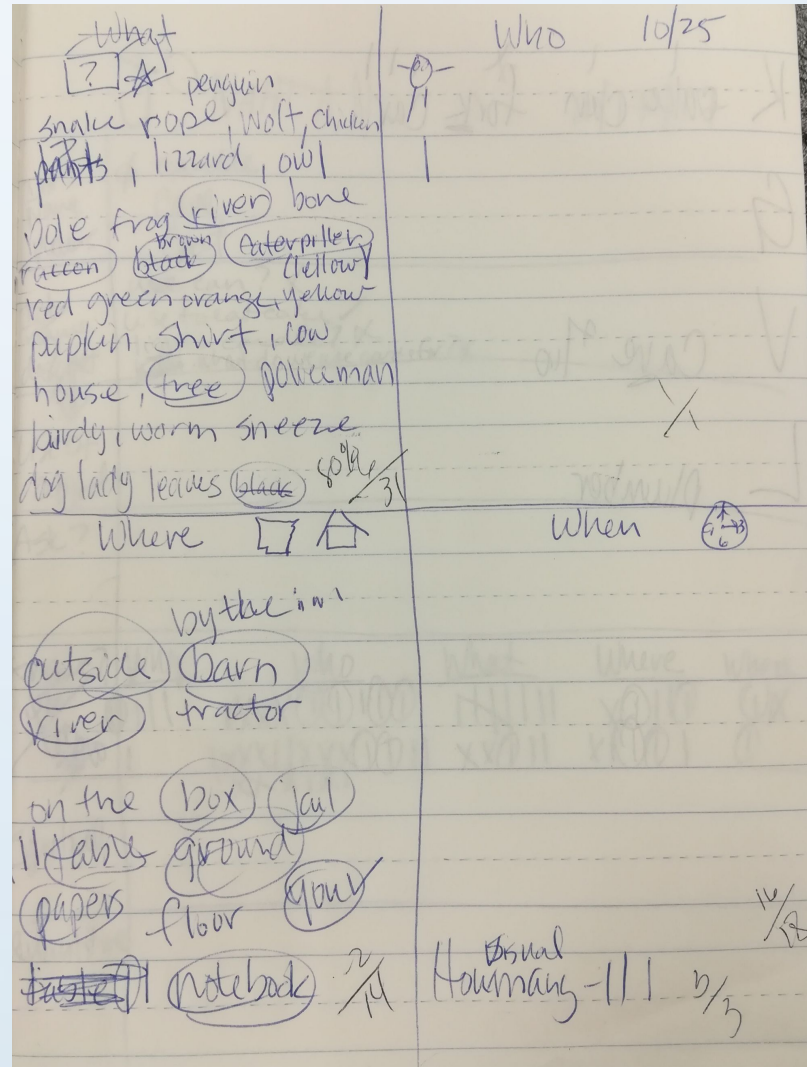 What
?
penguin
snake rope, wolf, chicken
pants, lizzard, owl
pole frog river bone
brown
raccon black caterpiller
(yellow)
red green orange, yellow
pupkin shirt, cow
house, tree policeman
birdy, worm sneeze
dog lady leaves black 80%
/31
Who 10/25
1/1
Where
by the
outside barn
river tractor
on the box jail
table ground
papers floor your
table notebook 12/14
When
visual
Howmany - III